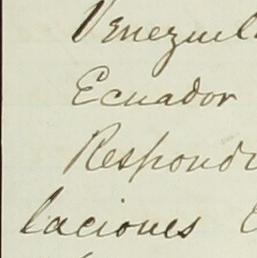 Venezuel
Ecuador
Respond
laciones